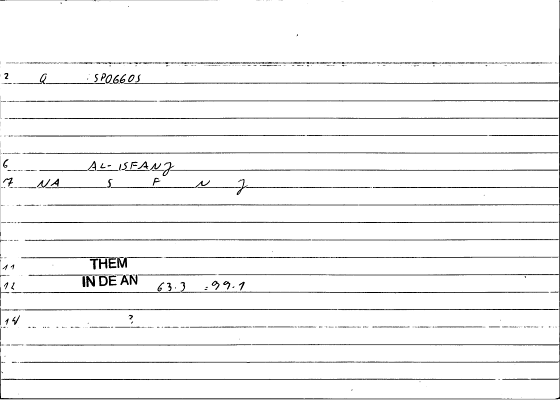 2 Q : SPO660S
6 AL-ISFANJ
7 NA S F N J
11 THEM
12 IN DE AN 63.3 : 99.1
14 ?